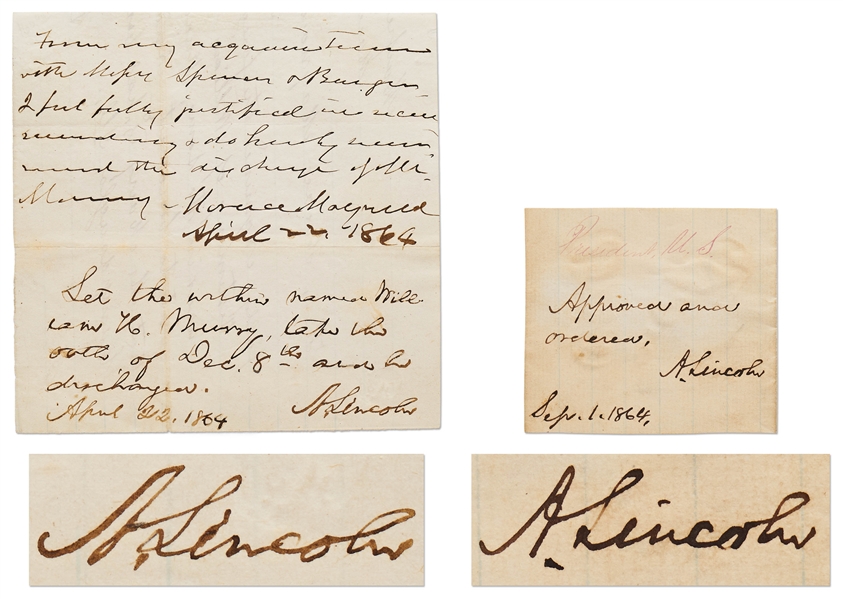 From my acquaintance
with Messrs Spencer & Burgin
I feel fully justified in recom
mending & do hereby recom
mend the discharge of Mr.
Murry. Horace Maynard
April 22, 1864
Let the within named Will-
iam H. Murry, take the
oath of Dec. 8th and be
discharged.
April 22, 1864 A. Lincoln
President, U.S.
Approved and
ordered.
A. Lincoln
Sep. 1. 1864.
A. Lincoln
A. Lincoln